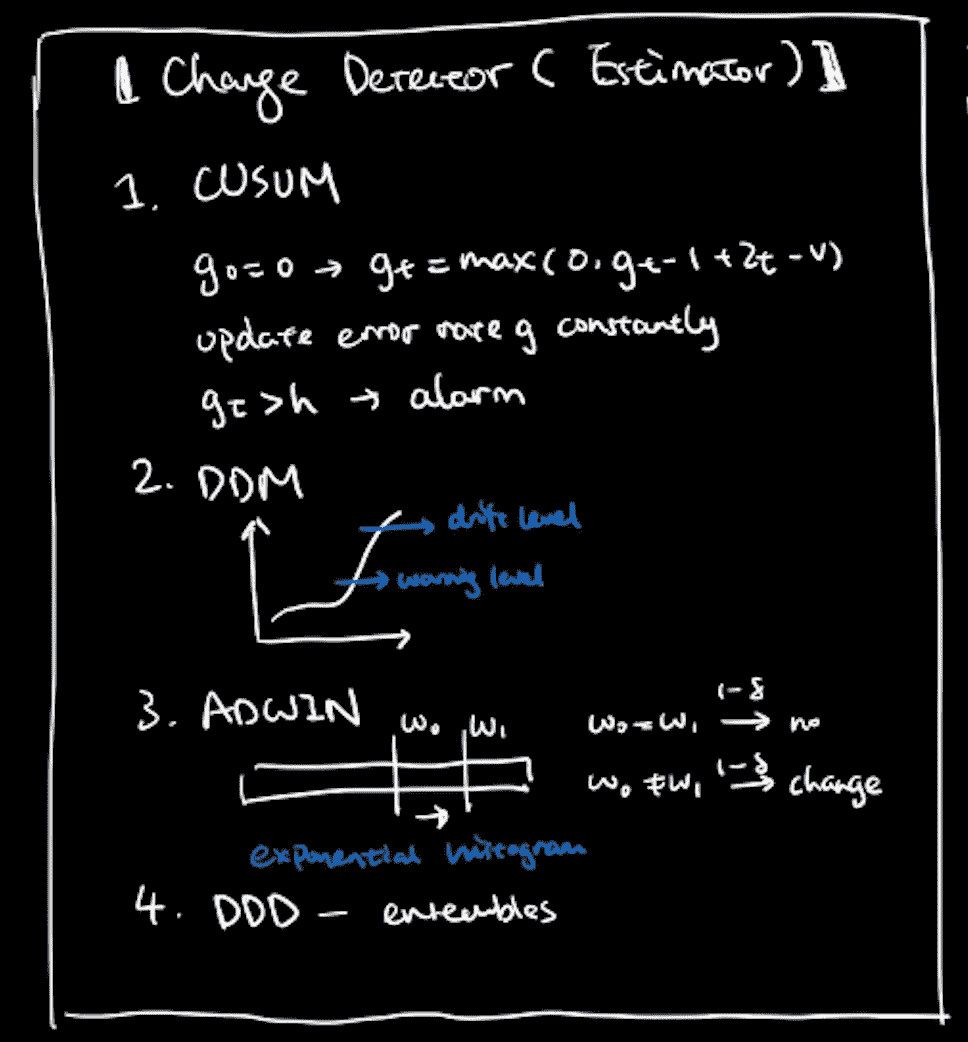 【 Change Detector ( Estimator ) 】
1. CUSUM
g0 = 0 → gt = max( 0, gt-1 + zt - v)
update error rate g constantly
gt > h → alarm
2. DDM
drift level
warnig level
3. ADWIN
W0 W1
W0 = W1 1-δ → no
W0 ≠ W1 1-δ → change
→
exponential
4. DDD - ensembles